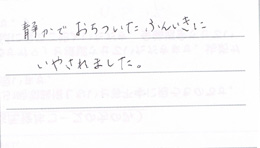 静かで おちついた ふんいきに
いやされました。